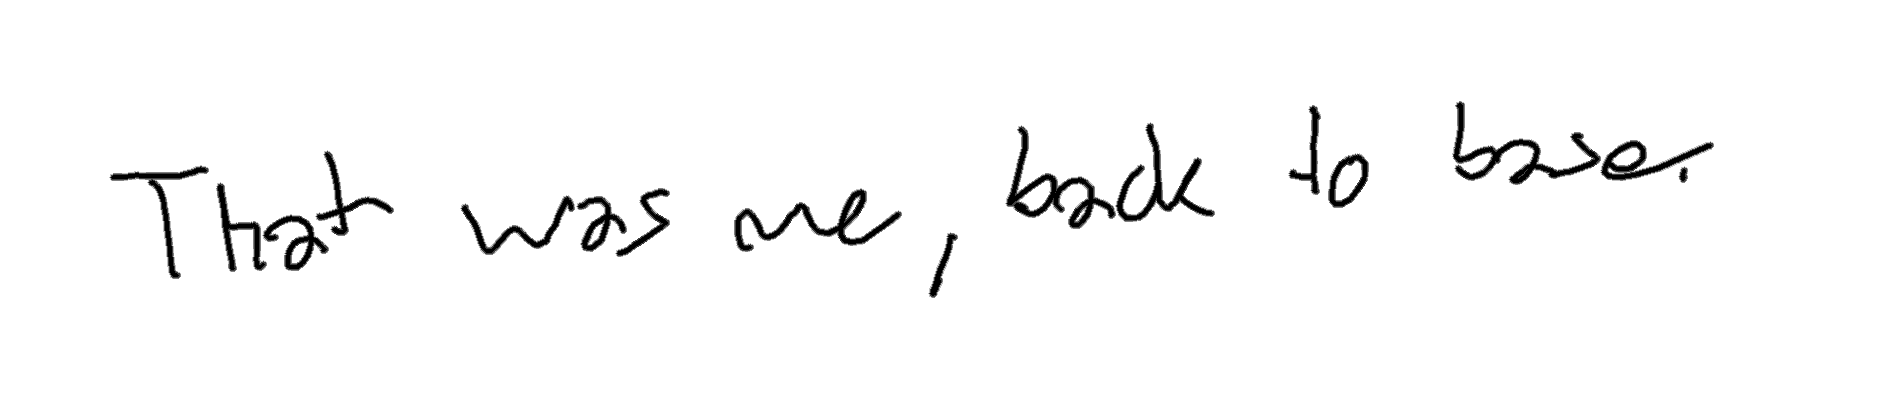 That was me, back to base.